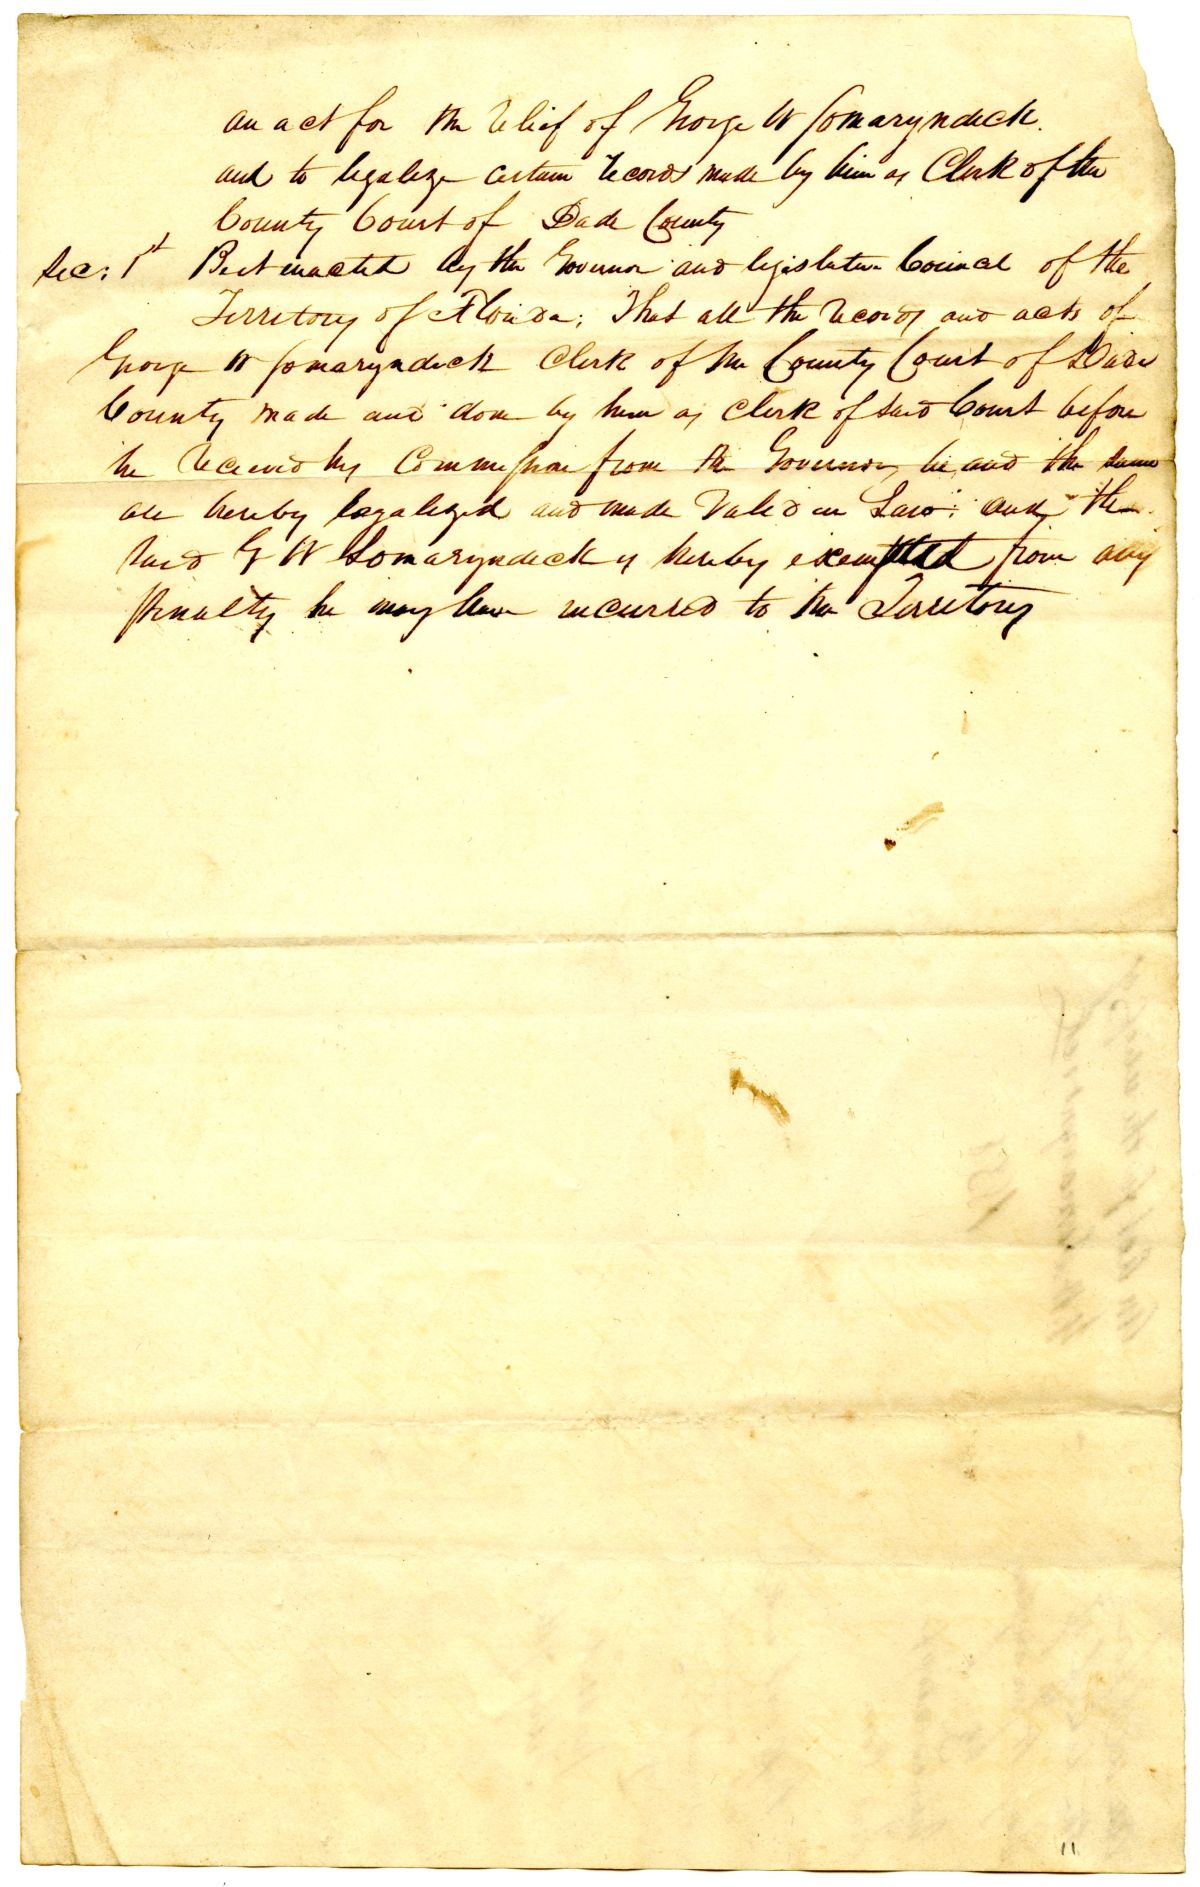 an act for the relief of George W Somaryndeck.
and to legalize certain records made by him as Clerk of the
County Court of Dade County
Sec: 1st Be it enacted by the Governor and legislative Council of the
Territory of Florida; That all the records and acts of
George W Somaryndeck Clerk of the County Court of Dade
County made and done by him as Clerk of said Court before
he received his Commission from the Governor, be, and the same
are hereby legalized and made valid in Law: and the
said G W Somaryndeck is hereby exempted from any
penalty he may have incurred to the Territory
11